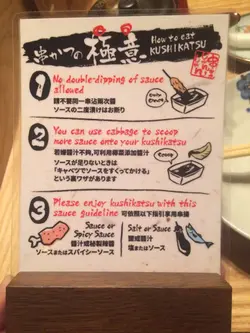 串かつの極意
How to eat
KUSHIKATSU
1 No double-dipping of sauce
allowed
請不要同一串沾兩次醬
ソースの二度漬けはお断り
Only
Once
2 You can use cabbage to scoop
more sauce onto your kushikatsu
若辣醬汁不夠,可利用椰菜添加醬汁
ソースが足りないときは
「キャベツでソースをすくってかける」
という裏ワザがあります
Scoop
3 Please enjoy kushikatsu with this
sauce guideline 可依照以下指引享用串揚
Sauce or
Spicy Sauce
醬汁或秘製辣醬
ソースまたはスパイシーソース
Salt or Sauce
鹽或醬汁
塩またはソース